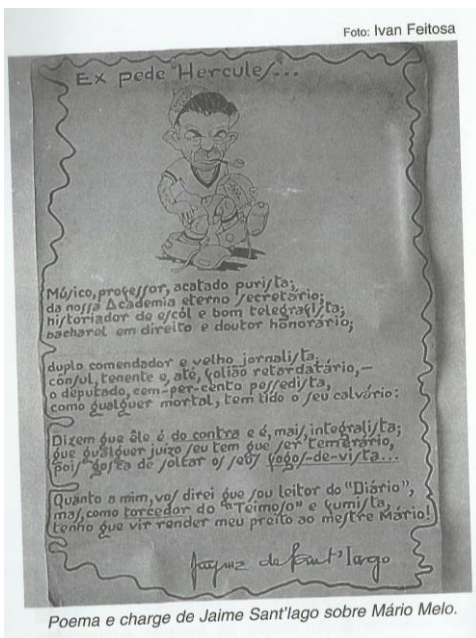 Foto: Ivan Feitosa
Ex pede Hercules...
Músico, professor, acatado purista;
da nossa Academia eterno secretário;
historiador de escól e bom telegrafista;
bacharel em direito e doutor honorário;
duplo comendador e velho jornalista,
cônsul, tenente e, até, folião retardatário,—
o deputado, cem-per-cento pessedista,
como qualquer mortal, tem tido o seu calvário:
Dizem que êle é do contra e é, mais, integralista;
que qualquer juízo seu tem que ser temerário,
pois gosta de soltar os seus fogos-de-vista...
Quanto a mim, vos direi que sou leitor do "Diário",
mas, como torcedor do "Teimoso" e fumista,
tenho que vir render meu preito ao mestre Mário!
Jayme de Sant'Iago
Poema e charge de Jaime Sant'Iago sobre Mário Melo.